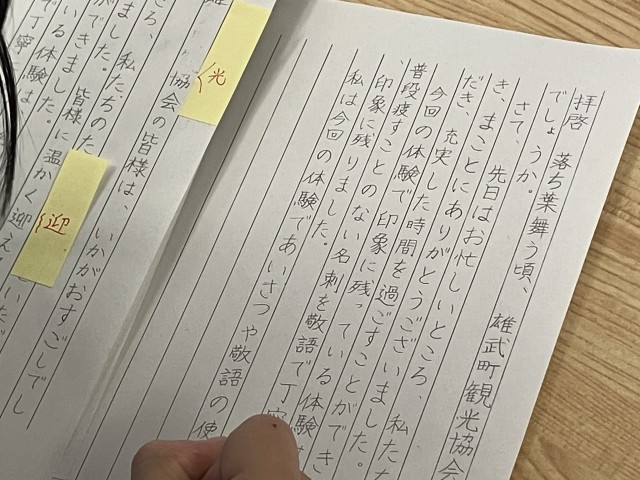 拝啓　落ち葉舞う頃、雄武町観光協会
でしょうか。
さて、先日はお忙しいところ、私た
き、まことにありがとうございました。
だき、充実した時間を過ごすことができ
今回の体験で印象に残っている体験は
普段疲すことのない名刺を敬語で丁寧
、印象に残りました。
私は今回の体験であいさつや敬語の使
光
協会の皆様は、いかがおすごしでし
ころ、私たちのた
迎
ました。
ができました。皆様に温かく迎え
いる体験は。
丁寧